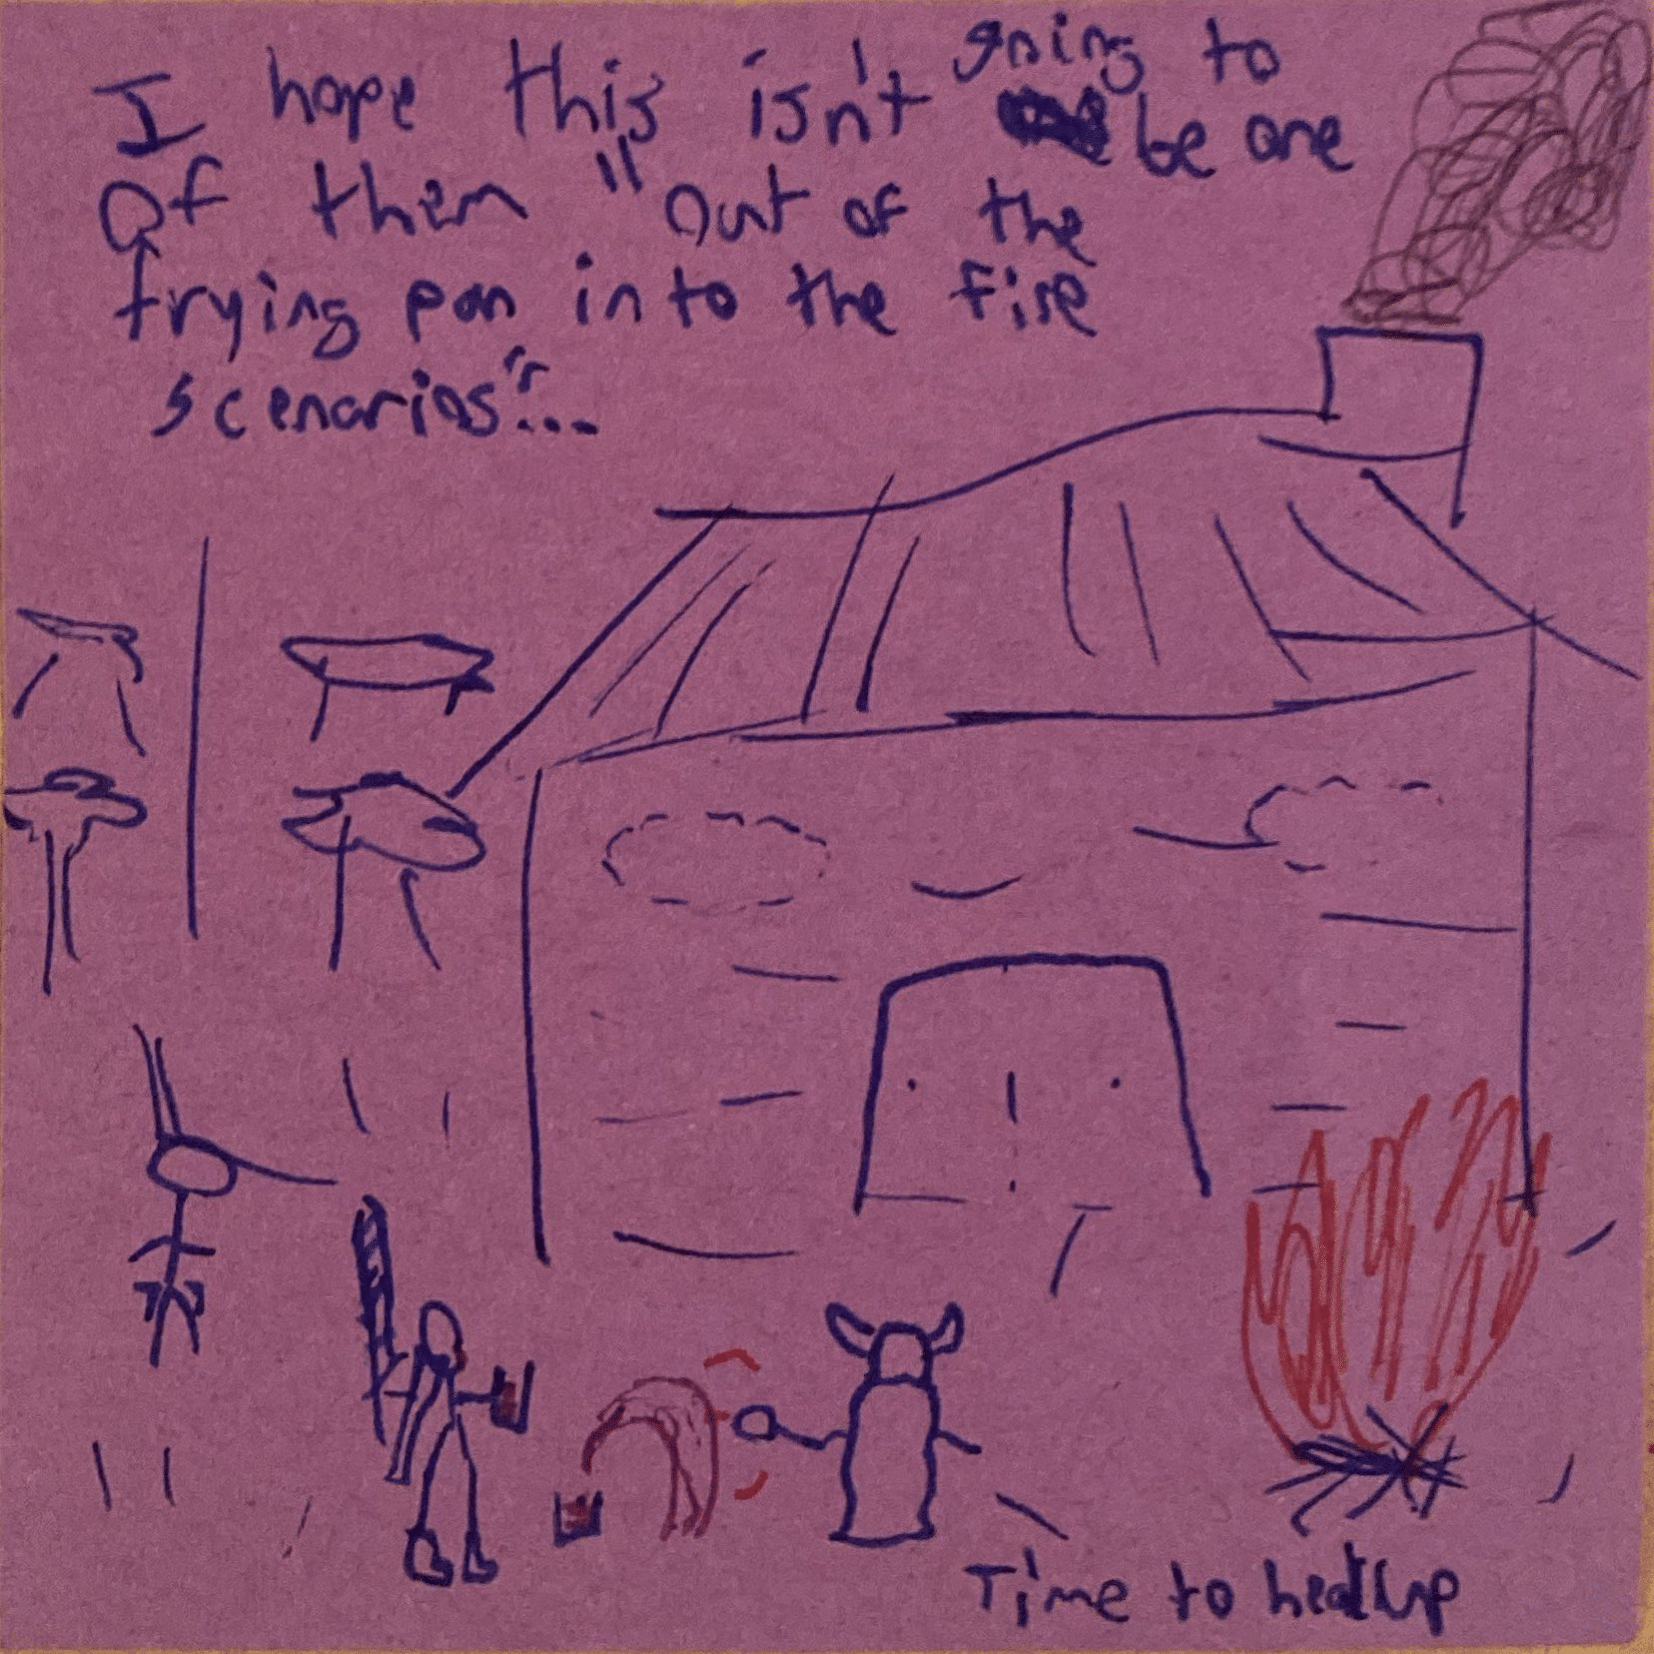 I hope this isn't going to be one
Of them "Out of the
frying pan in to the fire
scenarios"...
Time to heat up